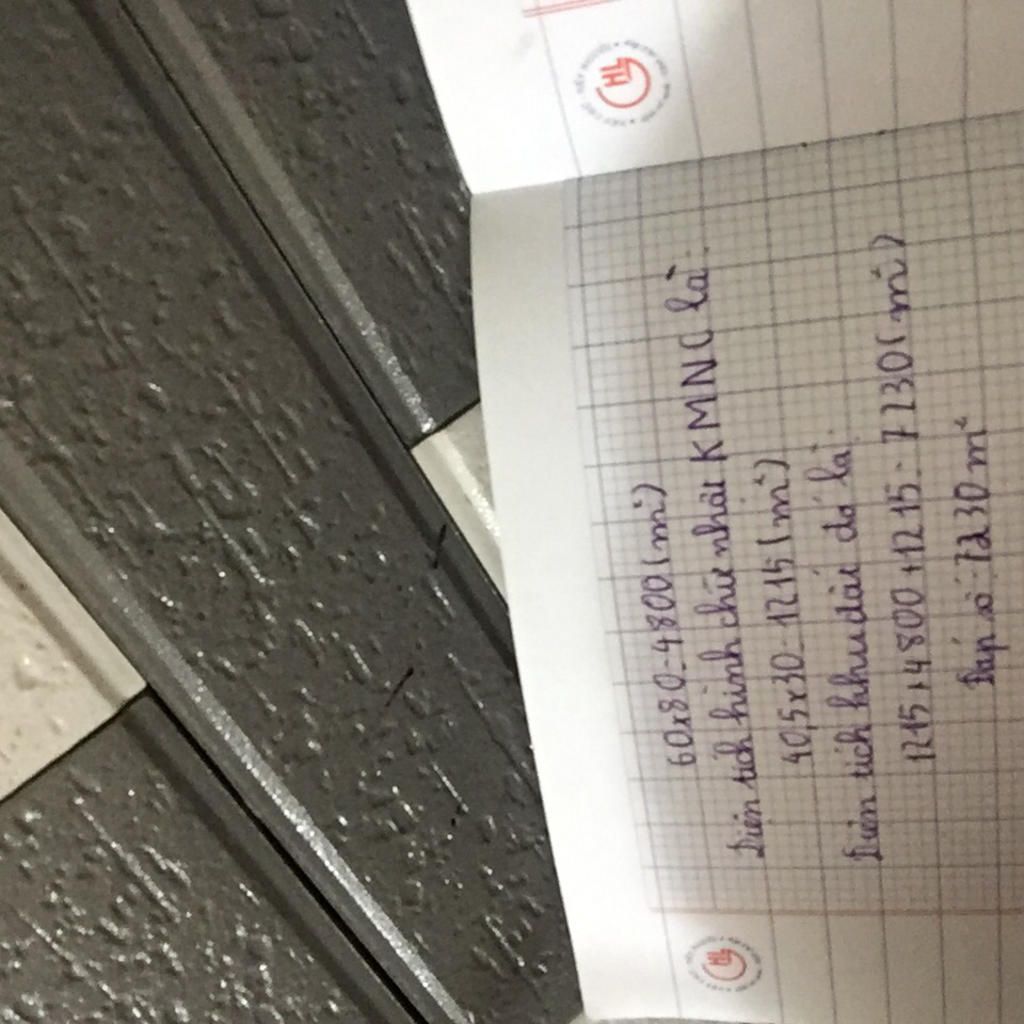 60x80=4800(m²)
Diện tích hình chữ nhật KMNC là:
40,5x30=1215(m²)
Diện tích khu đất đó là:
1215+4800+1215=7230(m²)
Đáp số: 7230m²
HL
HL